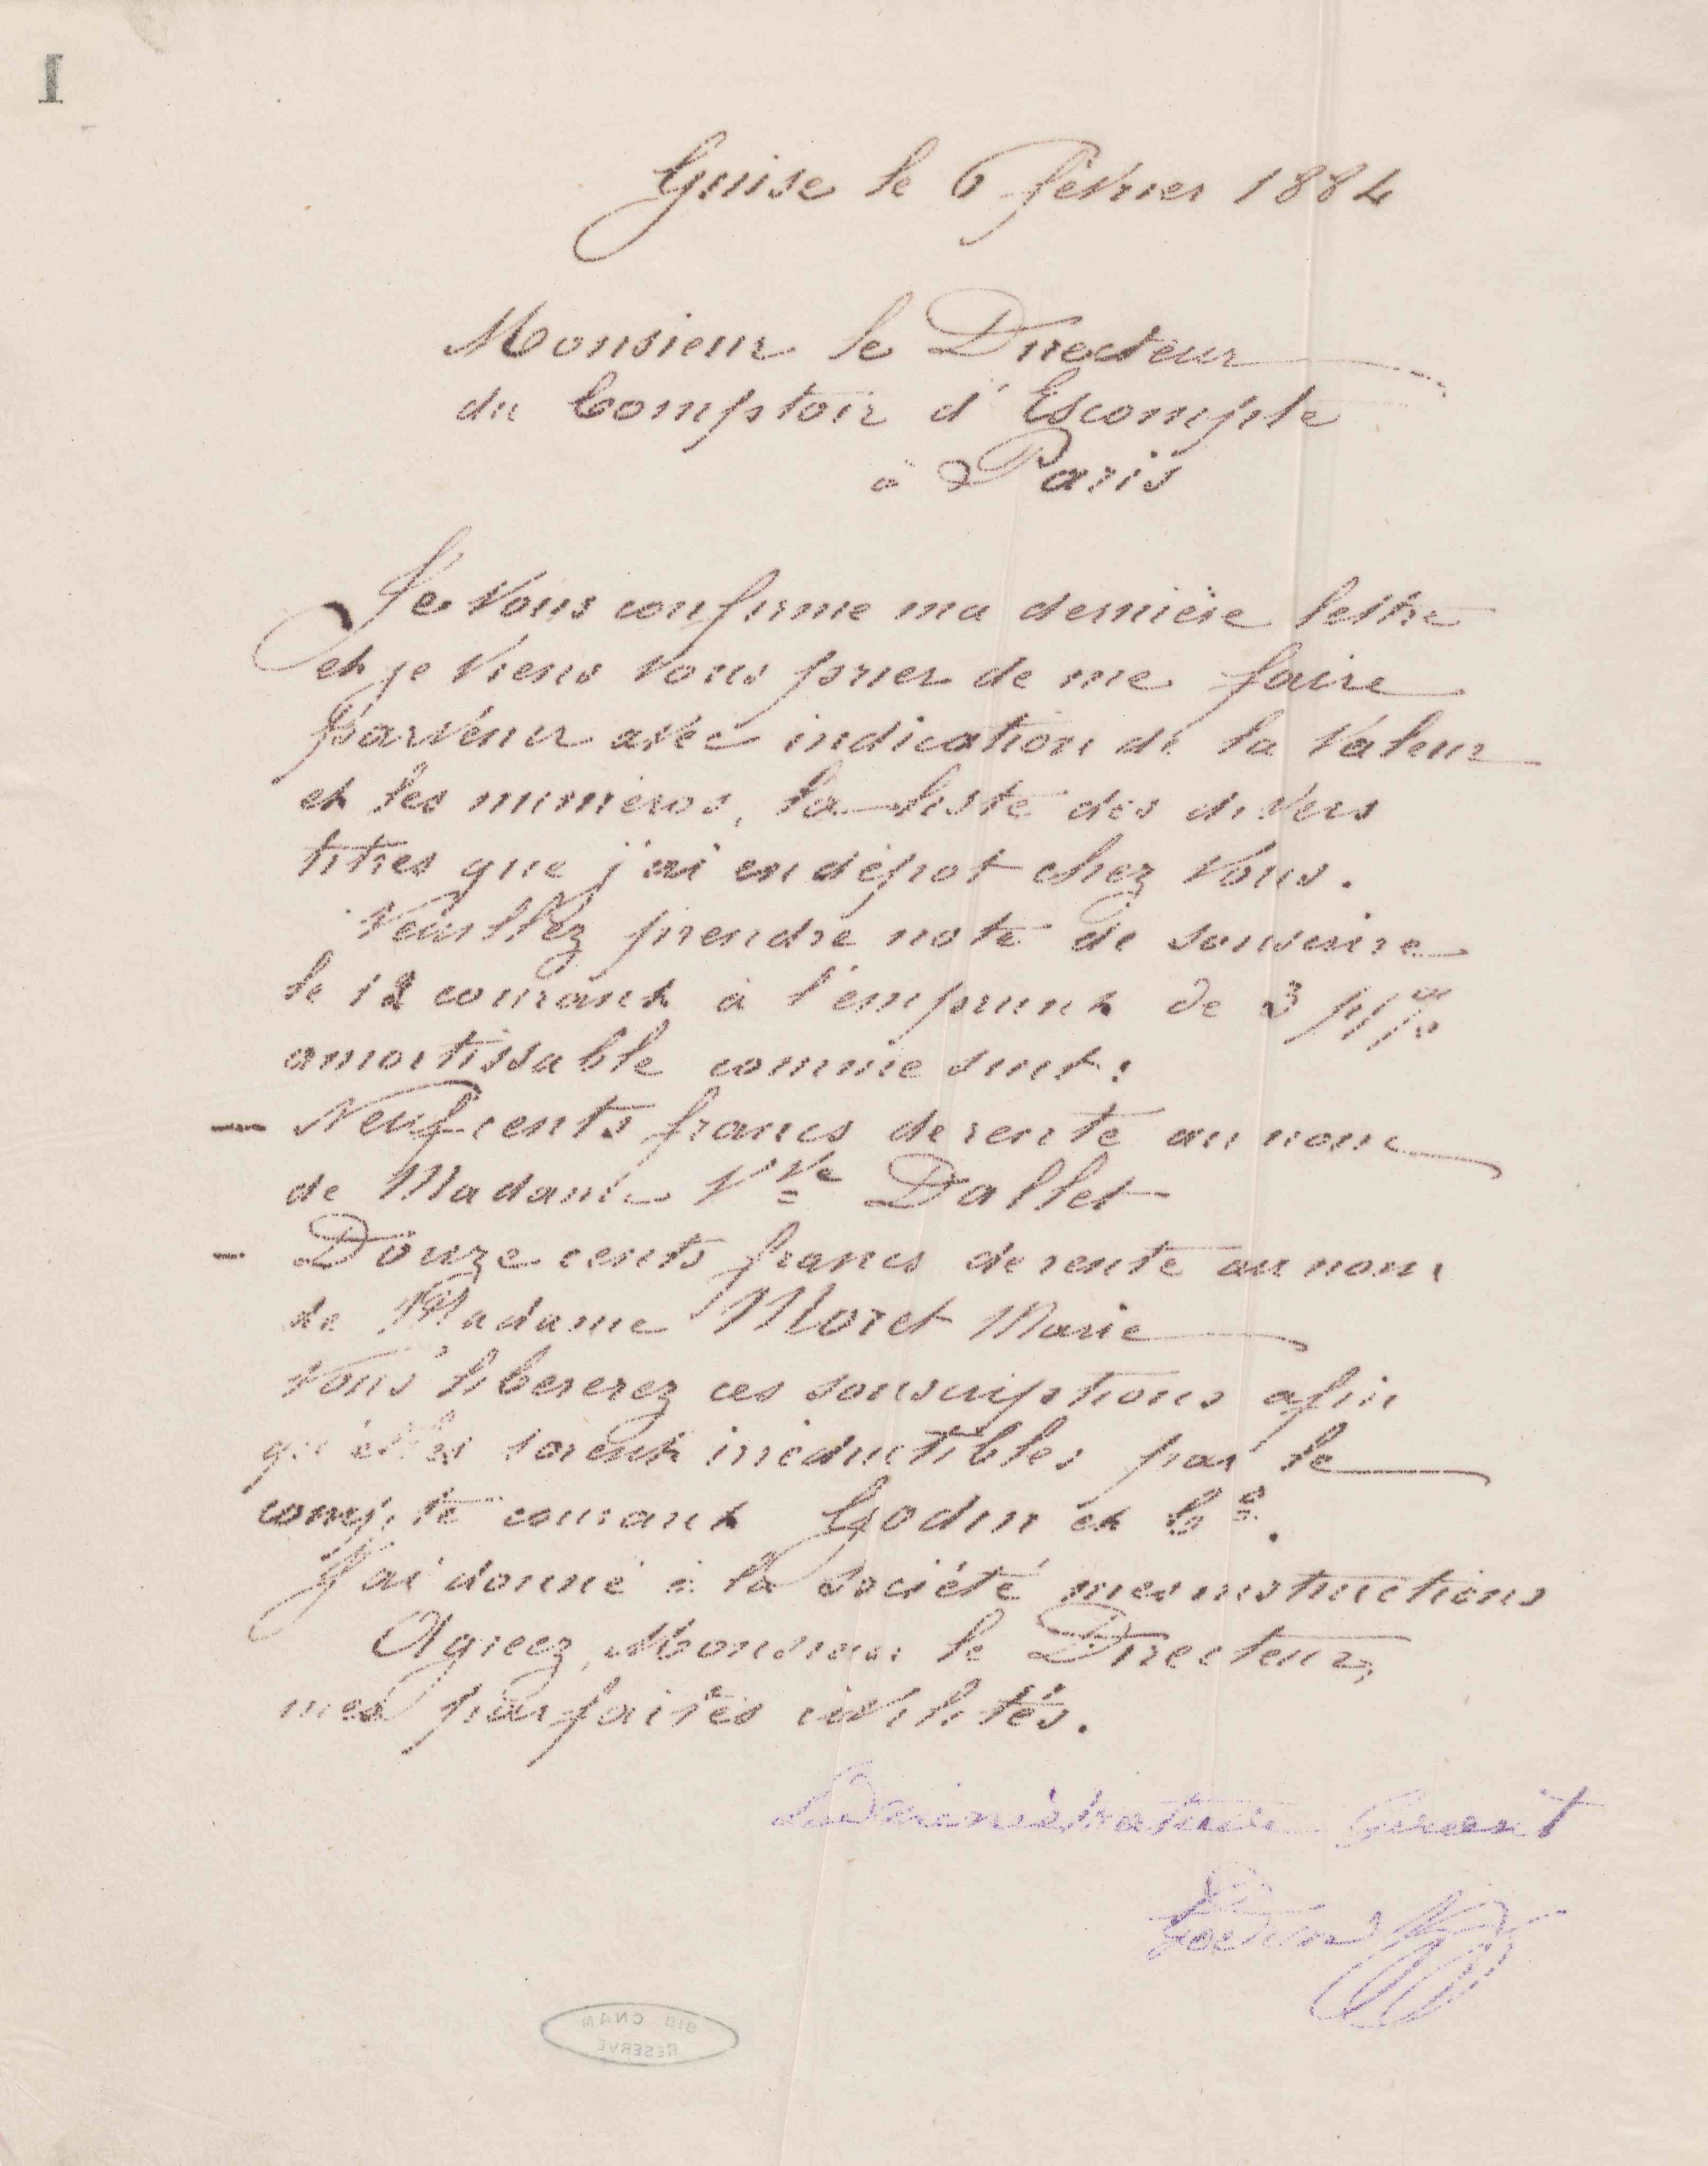 1
Guise le 6 février 1884
Monsieur le Directeur
du Comptoir d'Escompte
à Paris
Je vous confirme ma dernière lettre
et je viens vous prier de me faire
parvenir avec indication de la valeur
et les numéros, la liste des divers
titres que j'ai en dépot chez vous.
Veuillez prendre note de souscrire
le 12 courant à l'emprunt de 3 %
amortissable comme suit :
— Neuf cents francs de rente au nom
de Madame Vve Dallet
— Douze cents francs de rente au nom
de Madame Moret Marie
Vous libererez ces souscriptions afin
qu'elles soient irréductibles par le
compte courant Godin et Cie.
J'ai donné à la société mes instructions
Agréez, Monsieur le Directeur,
mes parfaites civilités.
L'administrateur Gérant
Godin
BIB CNAM
RESERVE